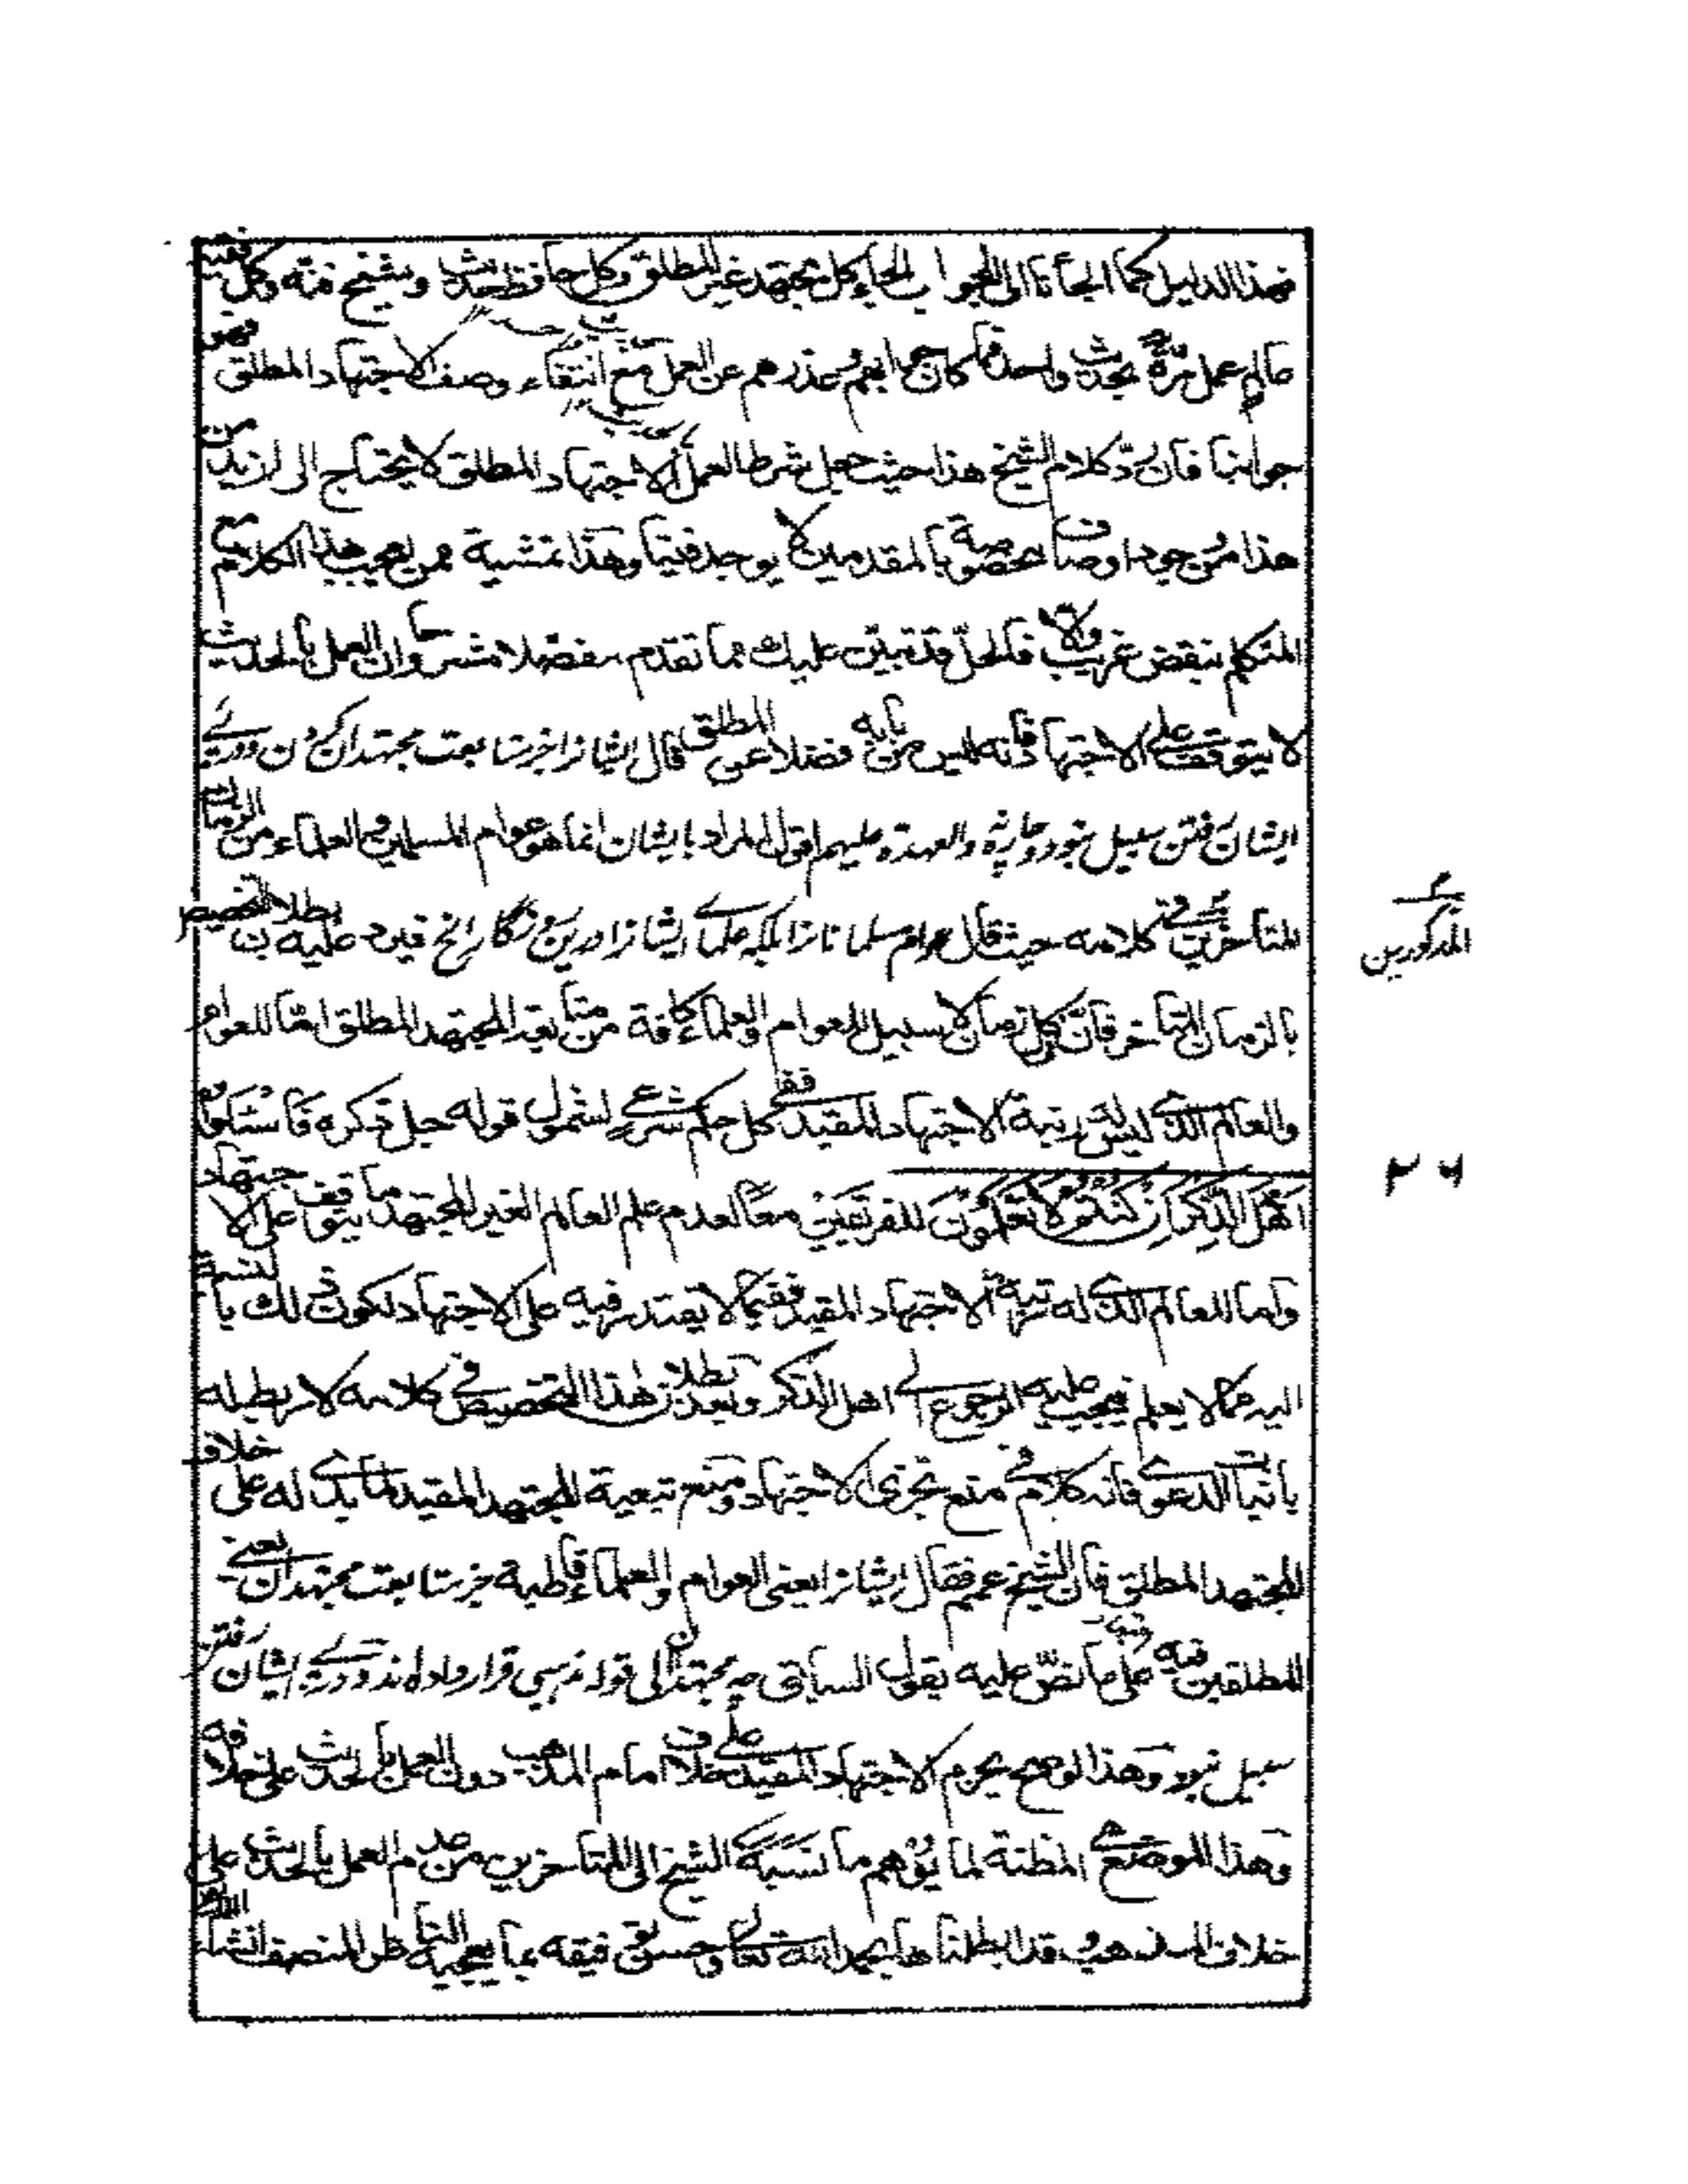 فهذا الدليل كما الجأنا الى الجواب الجاء كل مجتهد غير المطلق وكل حافظ حديث وشيخ فنه وكل فقيه
عالم عمل مرة بحديث واحد فما كان جوابهم وعذرهم عن العمل مع انتفاء وصف الاجتهاد المطلق فهو
جوابنا فان رد كلام الشيخ هذا حيث جعل شرط العمل الاجتهاد المطلق لا يحتاج الى ازيد من
هذا من وجود اوصاف مخصوصة بالمقدمين لا يوجد فينا وهذا تمشية ممن يعجبه هذا الكلام مع
المتكلم بنقض غريب والا فالحل قد تبين عليك مما تقدم مفصلا مشروحا وان العمل بالحديث
لا يتوقف على الاجتهاد فانه ليس من بابه فضلا عن المطلق قال ايشانرا جز متابعت مجتهدان كردن ودر پے
ايشان رفتن سبيل نبود وچاره نه والعهدة عليهم اقول المراد بايشان انما هو عوام المسلمين والعلماء من الزمان
المتأخر في كلامه حيث قال عوام مسلمانانرا بلكه علماے ايشانرا درين روزگار الخ فيرد عليه بطلان التخصيص
بالزمان المتأخر فان كل زمان لا سبيل للعوام والعلماء كافة من متابعة المجتهد المطلق اما للعوام
والعالم الذي ليس له رتبة الاجتهاد المقيد ففي كل حكم شرعي لشمول قوله جل ذكره فَاسْئَلُوْا
اَهْلَ الذِّكْرِ اِنْ كُنْتُمْ لَا تَعْلَمُوْنَ للفريقين معا لعدم علم العالم الغير المجتهد ما يتوقف على الاجتهاد
واما للعالم الذي له رتبة الاجتهاد المقيد ففيما لا يقتدر فيه على الاجتهاد لكون ذلك بالنسبة
اليه مما لا يعلم فيجب عليه الرجوع الى اهل الذكر وبعد بطلان هذا التخصيص في كلامه لا ربط له
باثبات الدعوى فانه كلام في منع تجزى الاجتهاد ومنع تبعية المجتهد المقيد لما بدى له على خلاف
المجتهد المطلق فان الشيخ عمم فقال ايشانرا يعنى العوام والعلماء قاطبة جز متابعت مجتهدان يعنے
المطلقين فيه على ما نص عليه بقوله السابق چه مجتهدان الى قوله مذهبى قرار داده اند ودر پے ايشان رفتن
سبيل نبود وهذا الوجه يحرم الاجتهاد المقيد على خلاف امام المذهب دون العمل بالحديث على خلافه
وهذا الموضع المظنة لما يوهم ما نسبه الشيخ الى المتأخرين من عدم العمل بالحديث على
خلاف المذهب قد ابطلناها بحمد الله تعالى وحسن توفيقه بما يعجب اليه الناظر المنصف انشاء الله
المذكورين
٢٦